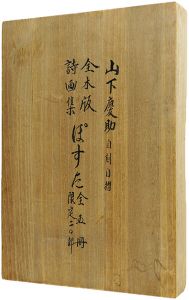 山下慶助 自刻自摺
全木版
詩画集 ぽすと
限定二〇部